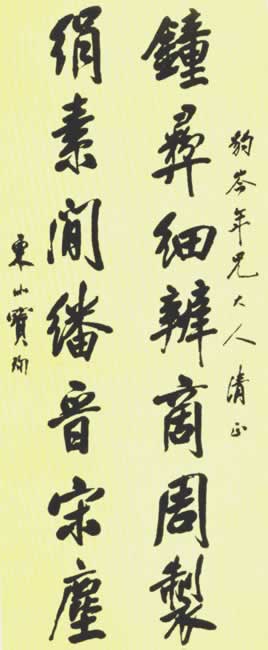 豹岑年兄大人清正
鐘彝細辨商周製
絹素閒繙晉宋塵
東山寶珣